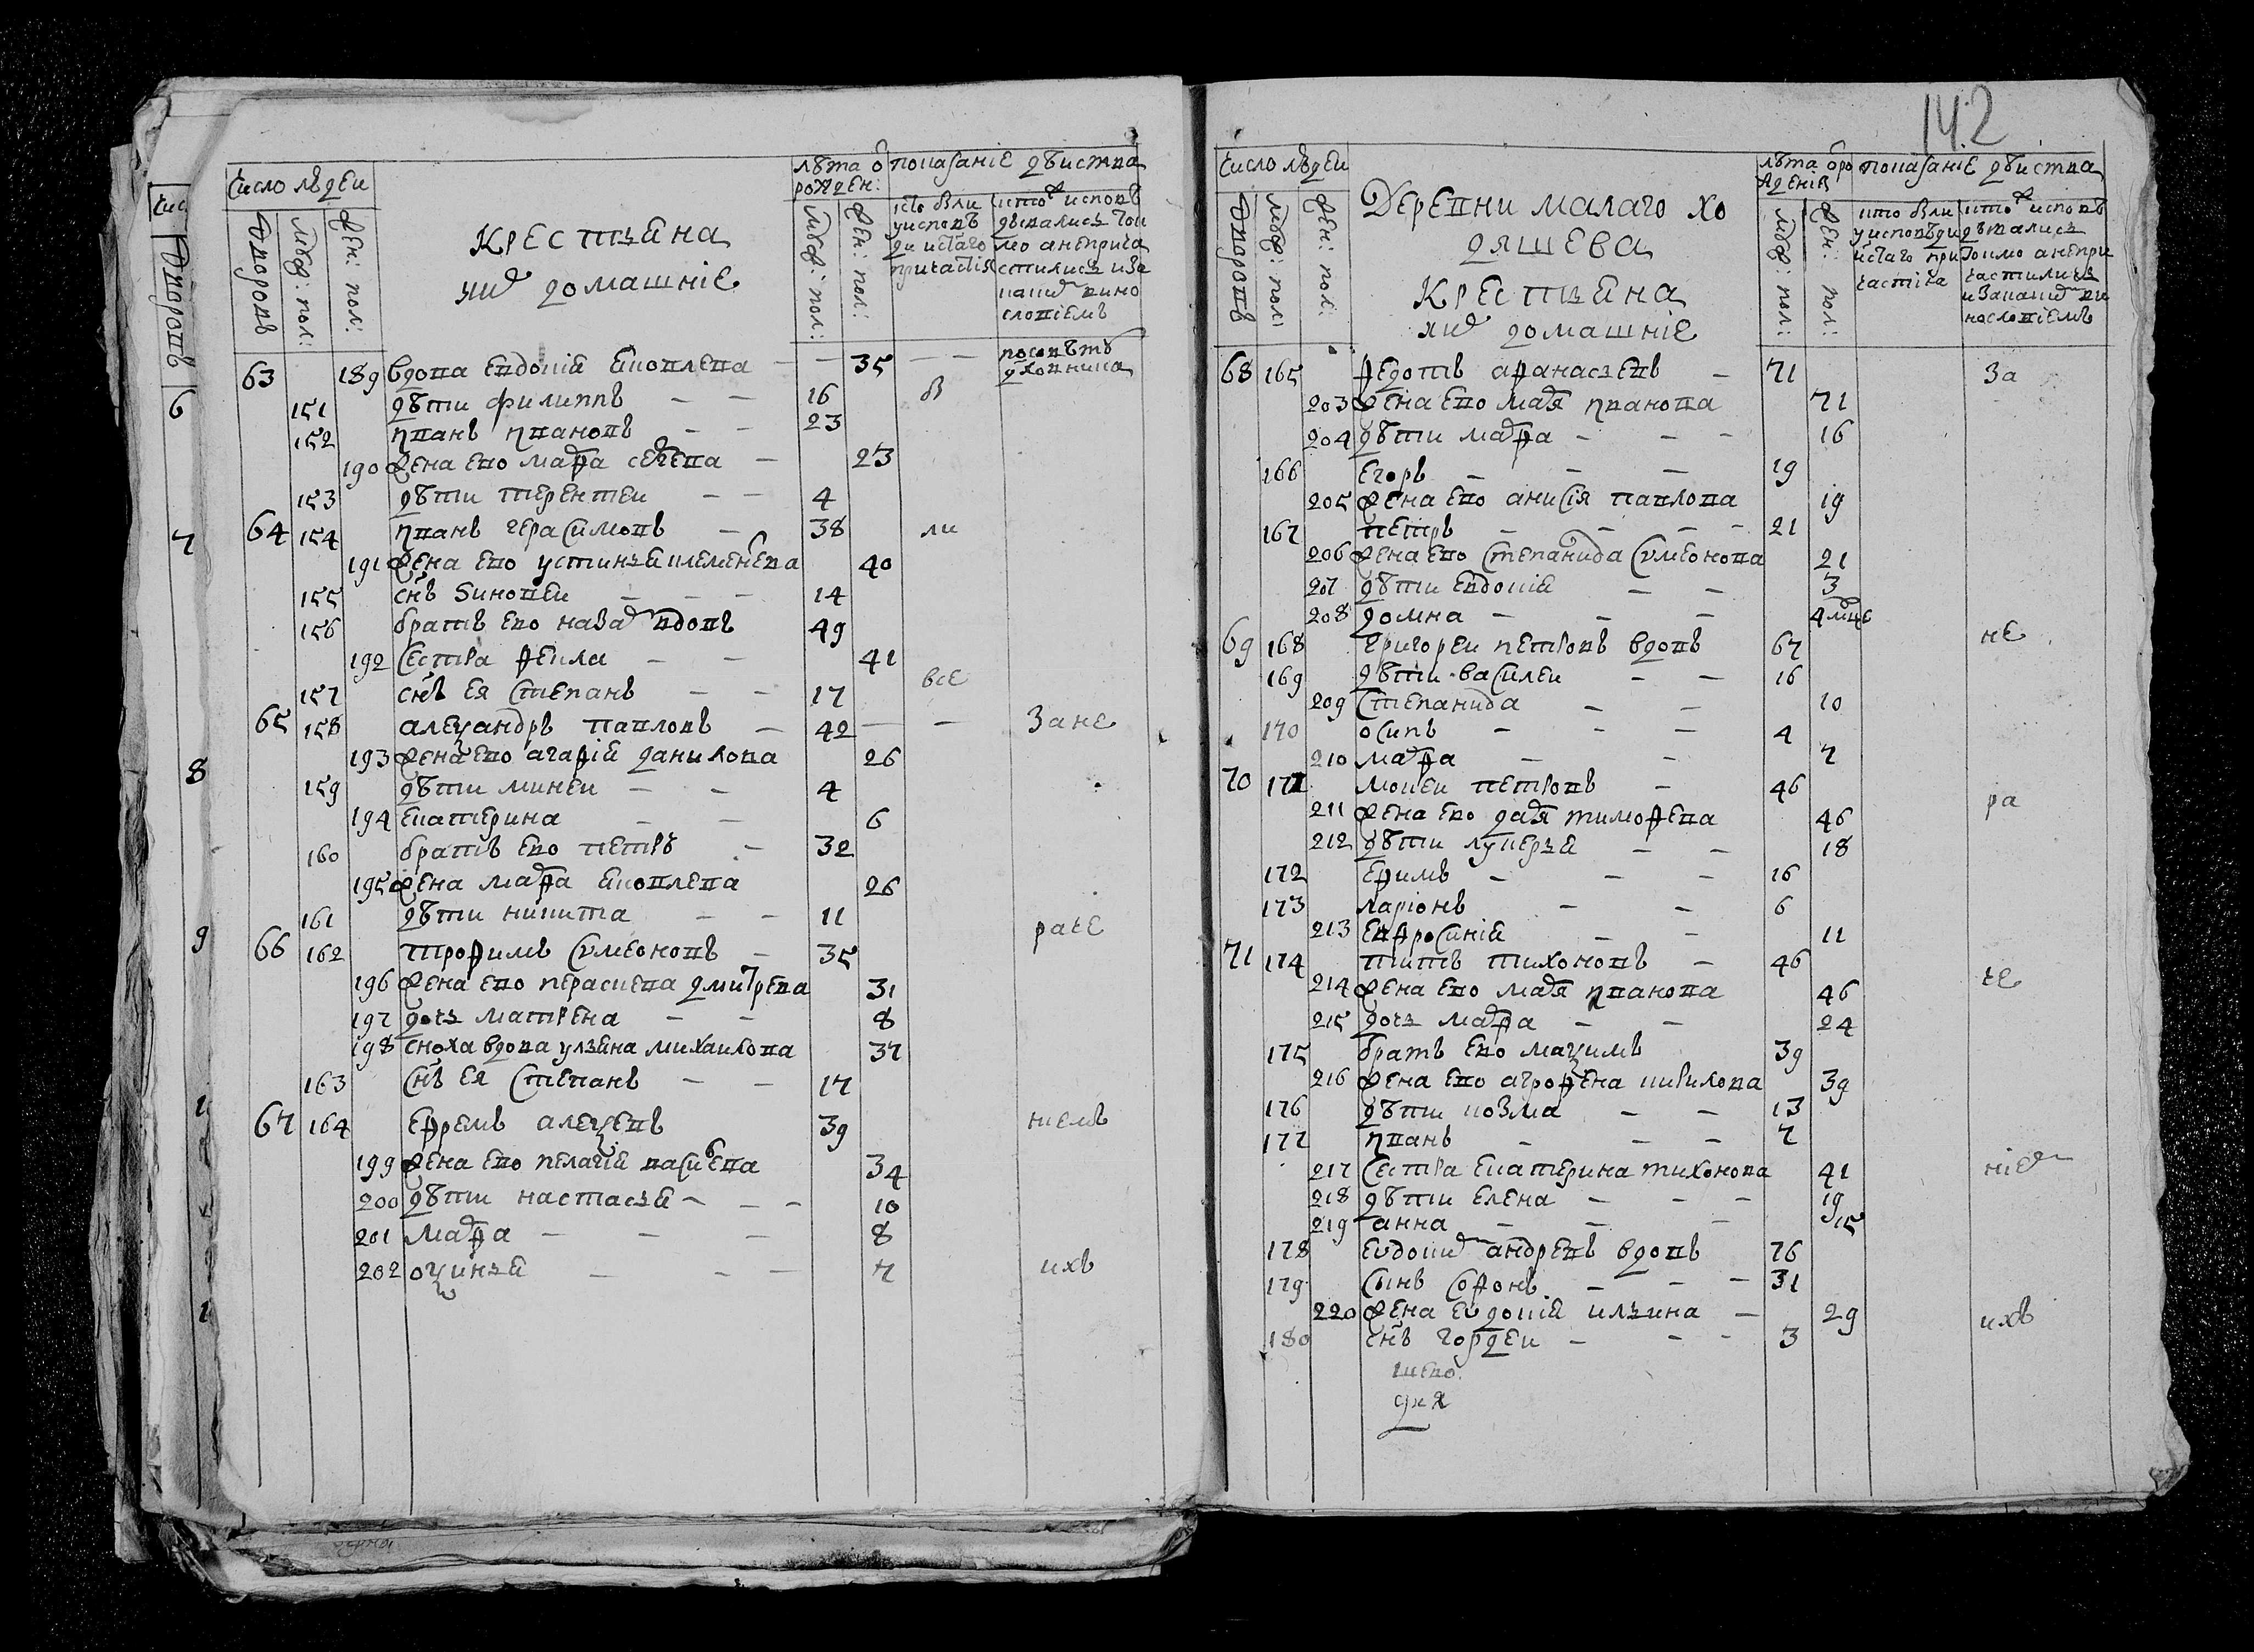 число людеи
дворовъ
муж: пол:
жен: пол:
крестьяна
и ихъ домашніе
лѣта о рожден:
муж: пол:
жен: пол:
показаніе дѣиства
кто былъ
у исповѣ
ди и с͠таго
причастія
кто ж исповѣ
дывались тои
мо а неприча
стились и за
какимъ вино
словіемъ
63 189 вдова евдокіа яковлева — — 35 — — по совѣтъ
духовника
151 дѣти филиппъ — — 16 б
152 иванъ ивановъ — — 23
190 жена ево марфа сергева — 23
153 дѣти терентеи — — 4
64 154 иванъ герасимовъ — 38 ли
191 жена ево устинья клеменьтева 40
155 с͠нъ зиновеи — — — 14
156 братъ ево назаръ вдовъ 49
192 сестра фекла — — 41
все
157 с͠нъ ея степанъ — — 17
65 158 александръ павловъ — 42 — — за не
193 жена ево агафіа данилова 26
159 дѣти минеи — — 4
194 екатерина — — 6
160 братъ ево петръ — 32
195 жена марфа яковлева 26
161 дѣти никита — — 11
раче
66 162 трофимъ сѵмеоновъ — 35
196 жена ево параскева дмитрева 31
197 дочь матрена — — 8
198 сноха вдова ульяна михаилова 37
163 с͠нъ ея степанъ — — 17
67 164 ефремъ алексевъ 39 ниемъ
199 жена ево пелагіа васильева 34
200 дѣти настасья — — — 10
201 марфа — — — 8
202 оксинья — — — 7 ихъ
142
число людеи
дворовъ
муж: пол:
жен: пол:
деревни малаго хо
дяшева
крестьяна
и ихъ домашніе
лѣта о ро
жденія
муж: пол:
жен: пол:
показаніе дѣиства
кто былъ
у исповѣди
и с͠таго при
частіа
кто ж исповѣ
дывались
токмо а непри
частились
и за какимъ ви
нословіемъ
68 165 федотъ афанасьевъ — 71 за
203 жена ево марья иванова 71
204 дѣти марфа — — — 16
166 егоръ — — — 19
205 жена ево анисія павлова 19
167 петръ — — — — 21
206 жена ево степанида сѵмеонова 21
207 дѣти евдокіа — — 3
208 домна — — — 4 м͠це
69 168 григореи петровъ вдовъ 67 не
169 дѣти василеи — — 16
209 степанида — — 10
170 осипъ — — — 4
210 марфа — — 7
70 171 мокеи петровъ — 46
ра
211 жена ево дарья тимофева 46
212 дѣти лукерья — — 18
172 ефимъ — — — 16
173 ларіонъ — — 6
213 евфросиніа — — 11
71 174 титъ тихоновъ — 46
че
214 жена ево марья иванова 46
215 дочь марфа — — 24
175 братъ ево максимъ 39
216 жена ево агрофена кирилова 39
176 дѣти козма — — 13
177 иванъ — — — 7
217 сестра екатерина тихонова 41 ніемъ
218 дѣти елена — — — 19
219 анна — — — 15
178 евдокимъ андревъ вдовъ 76
179 сынъ софонъ — — — 31
220 жена евдокіа ильина — 29 ихъ
180 с͠нъ гордеи — — — 3